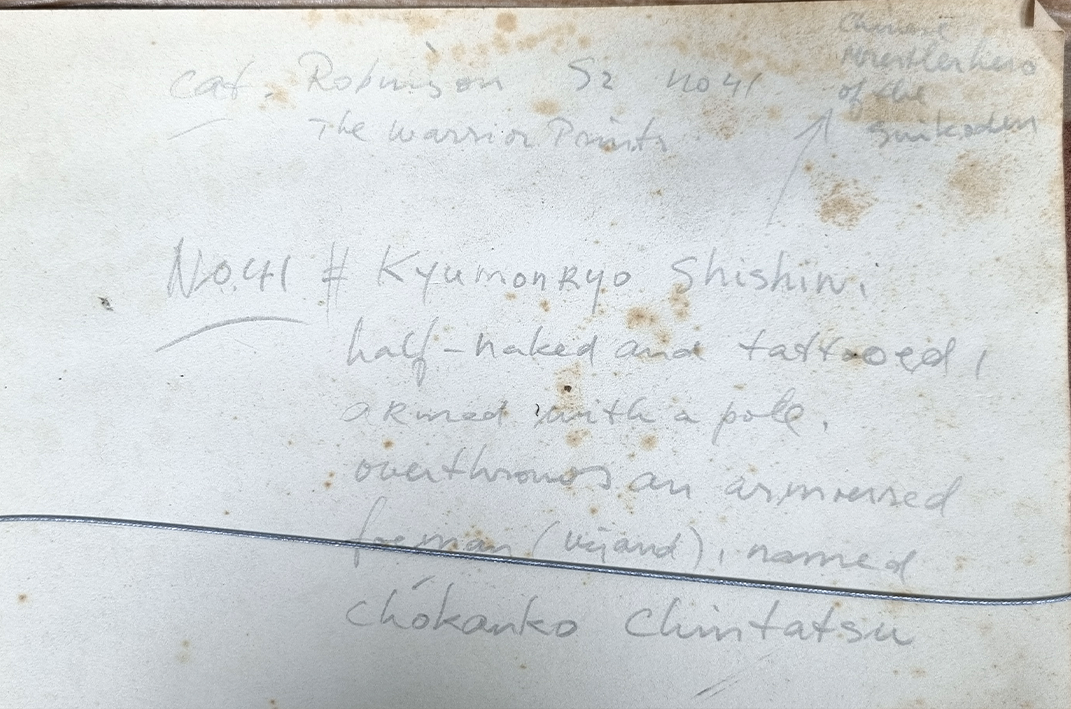 Chinese
wrestler hero
of the
Suikoden
cat. Robinson S2 no 41
The Warrior Prints
No.41 # Kyumonryo Shishin,
half-naked and tattooed,
armed with a pole,
overthrows an armoured
foeman (vijand), named
Chókanko Chintatsu